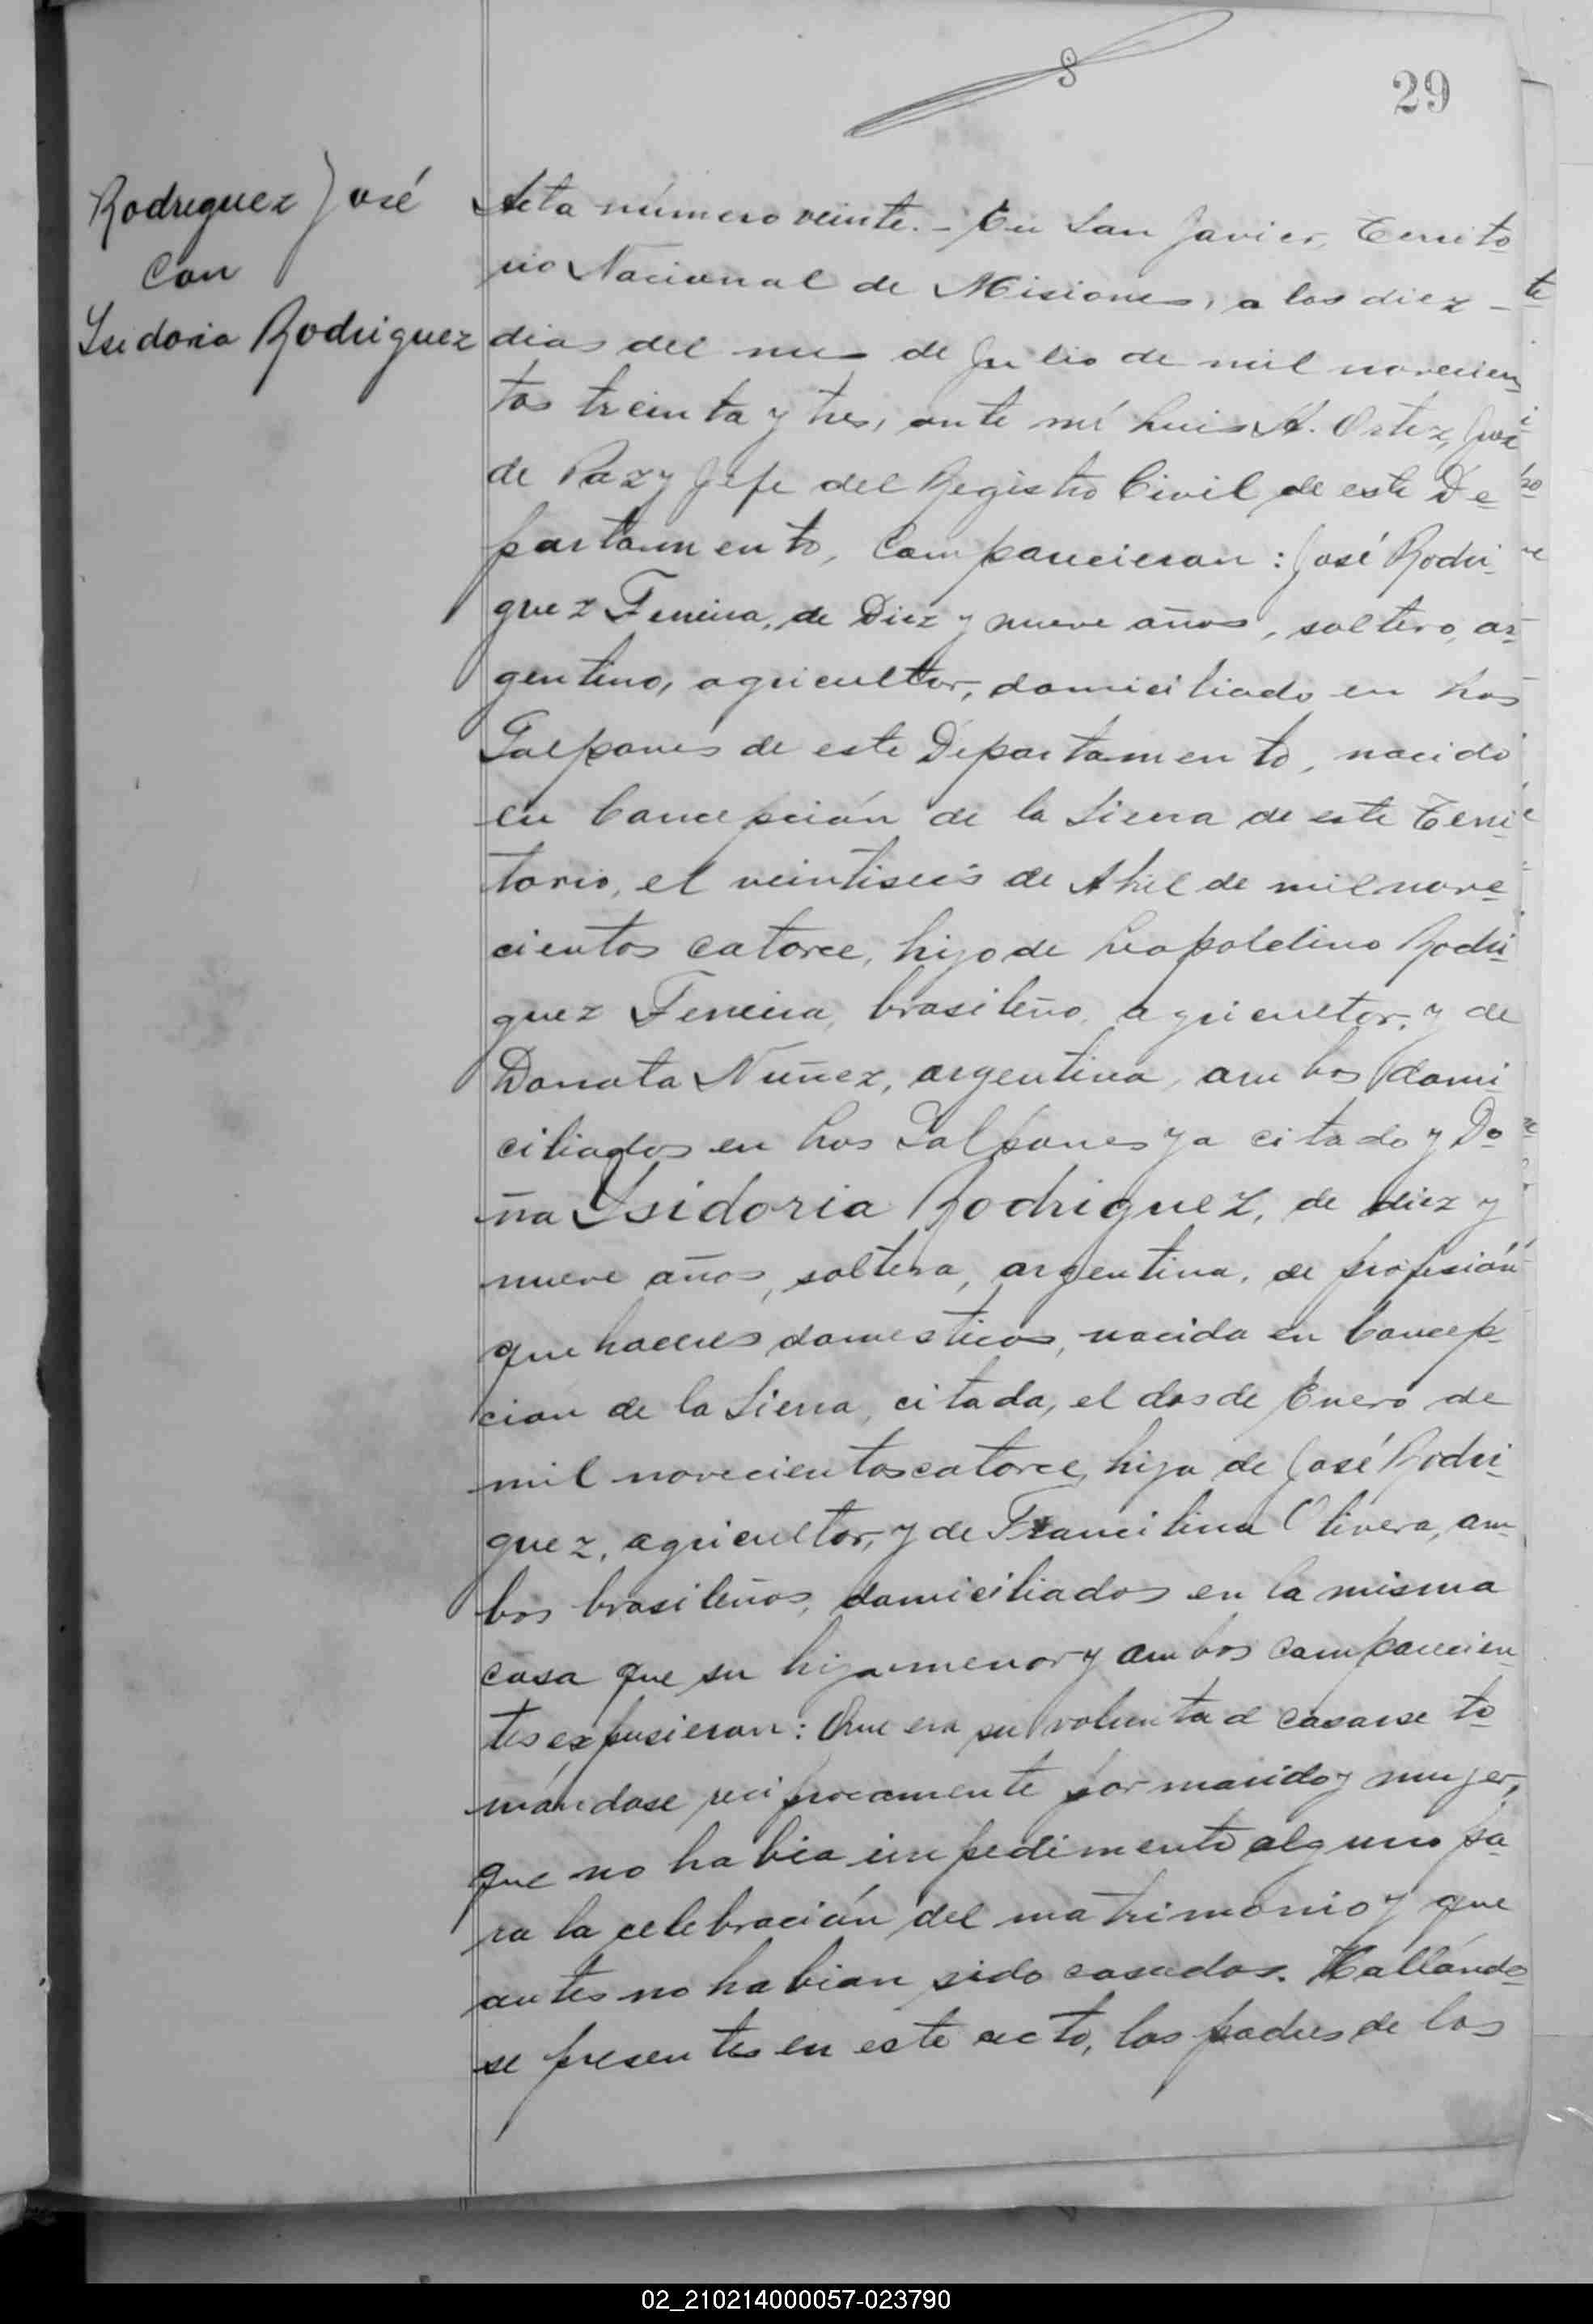 29
Rodriguez José
Con
Isidoria Rodriguez
Acta número veinte. - En San Javier, Territo
rio Nacional de Misiones, a los diez -
dias del mes de Julio de mil novecien
tos treinta y tres, ante mí Luis A. Ortez, Juez
de Paz y Jefe del Registro Civil de este De
partamento, Comparecieron: José Rodri
guez Ferreira, de Diez y nueve años, soltero, ar
gentino, agricultor, domiciliado en Los
Galpones de este Departamento, nacido
en Concepción de la Sierra de este Terri
torio, el veintiseis de Abril de mil nove
cientos catorce, hijo de Leopoldino Rodri
guez Ferreira, brasileño, agricultor, y de
Donata Nuñez, argentina, ambos domi
ciliados en Los Galpones ya citado y Do
ña Isidoria Rodriguez, de diez y
nueve años, soltera, argentina, de profesión
que haceres domesticos, nacida en Concep
ción de la Sierra, citada, el dos de Enero de
mil novecientos catorce, hija de José Rodri
guez, agricultor, y de Francilina Olivera, am
bos brasileños, domiciliados en la misma
casa que su hija menor y ambos comparecien
tes expusieron: Que era su voluntad casarse to
mándose reciprocamente por marido y mujer,
que no habia impedimento alguno pa
ra la celebración del matrimonio y que
antes no habian sido casados. Hallándo
se presentes en este acto, los padres de los
02_210214000057-023790